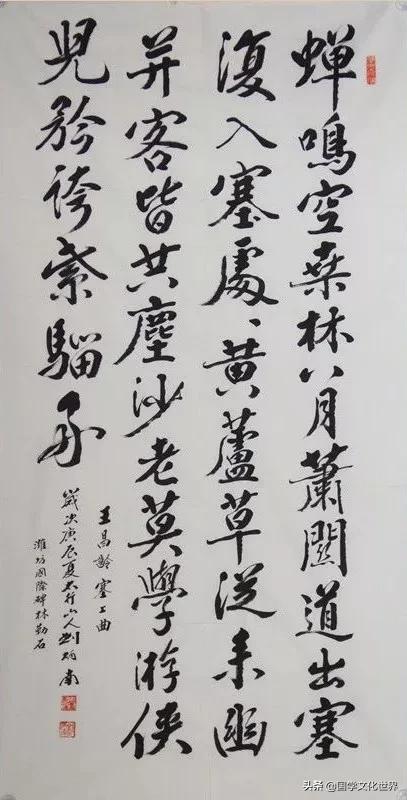 蝉鳴空桑林八月蕭關道出塞
復入塞處、黄蘆草從来幽
并客皆共塵沙老莫學游俠
兒矜誇紫騮好
王昌齡塞上曲
歲次庚辰夏太行山人劉炳南
濰坊國際碑林勒石
头条 @国学文化世界